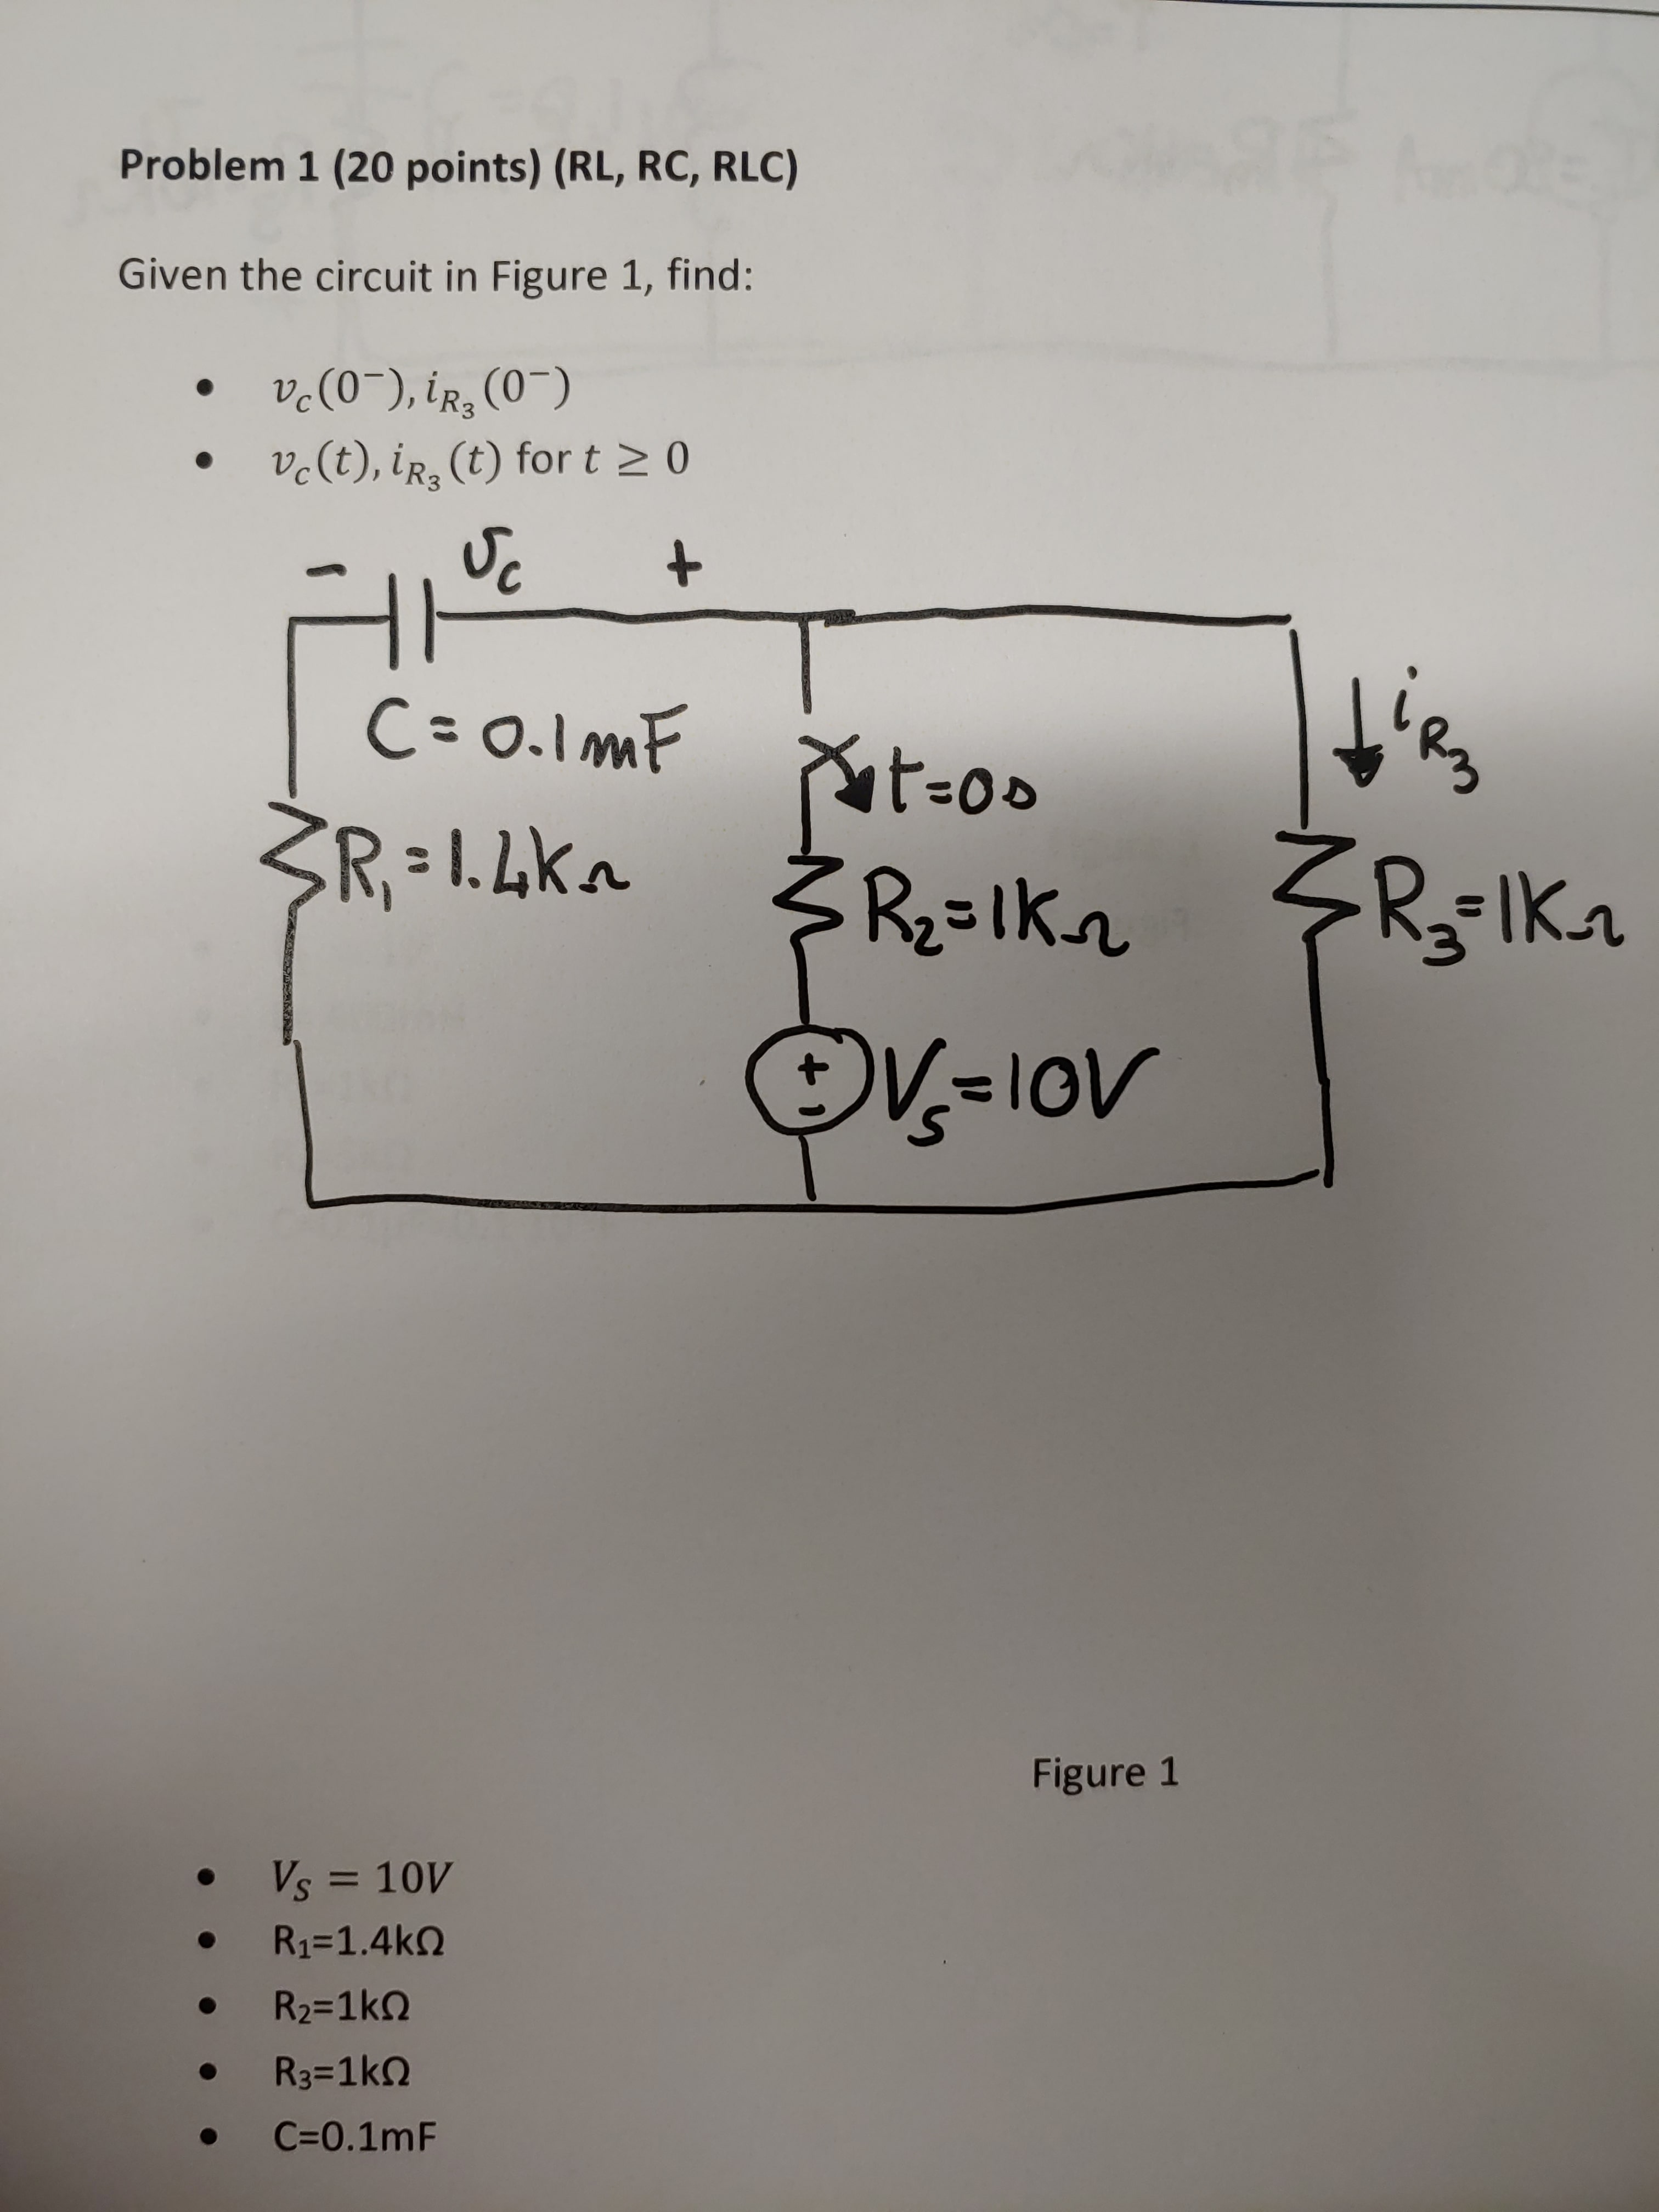 Problem 1 (20 points) (RL, RC, RLC)
Given the circuit in Figure 1, find:
• v_c(0⁻), i_R₃(0⁻)
• v_c(t), i_R₃(t) for t ≥ 0
- v_c +
C=0.1mF
i_R₃
t=0s
R₁=1.4kΩ
R₂=1kΩ
R₃=1kΩ
+
-
V_s=10V
Figure 1
• V_S = 10V
• R₁=1.4kΩ
• R₂=1kΩ
• R₃=1kΩ
• C=0.1mF